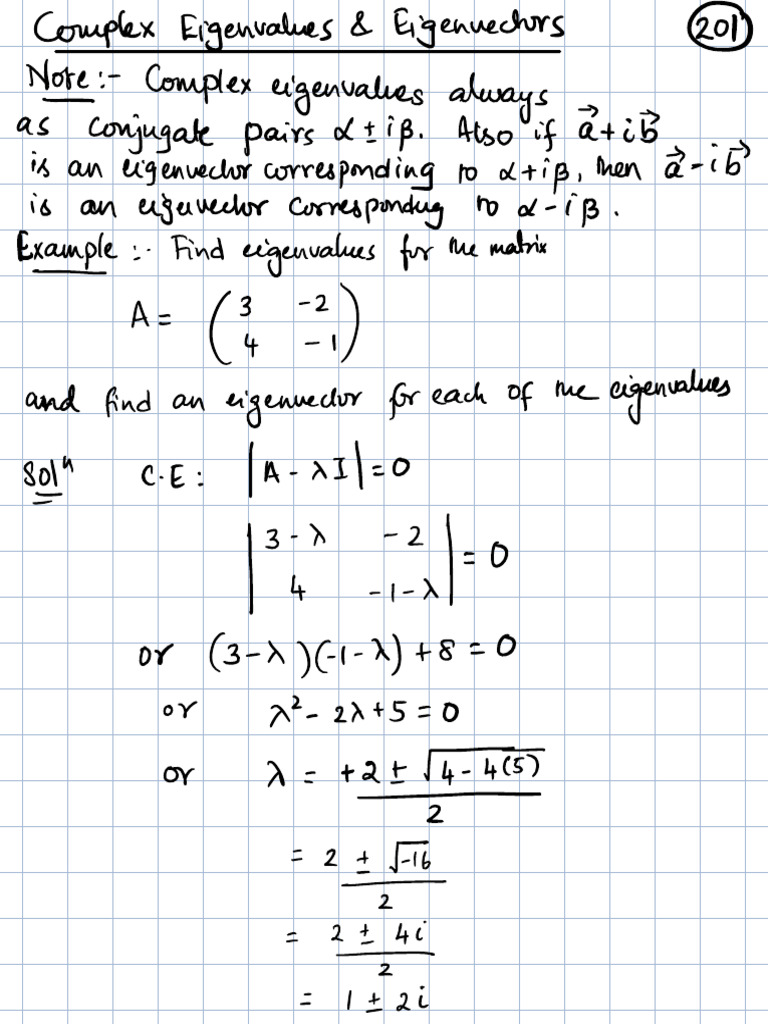 Complex Eigenvalues & Eigenvectors 201
Note:- Complex eigenvalues always
as conjugate pairs α ± iβ. Also if a⃗ + i b⃗
is an eigenvector corresponding to α + iβ, then a⃗ - i b⃗
is an eigenvector corresponding to α - iβ.
Example:- Find eigenvalues for the matrix
A = ( 3 -2
4 -1 )
and find an eigenvector for each of the eigenvalues
Solⁿ C.E: |A - λI| = 0
| 3-λ -2
4 -1-λ | = 0
or (3-λ)(-1-λ) + 8 = 0
or λ² - 2λ + 5 = 0
or λ = +2 ± √4 - 4(5)
2
= 2 ± √-16
2
= 2 ± 4i
2
= 1 ± 2i